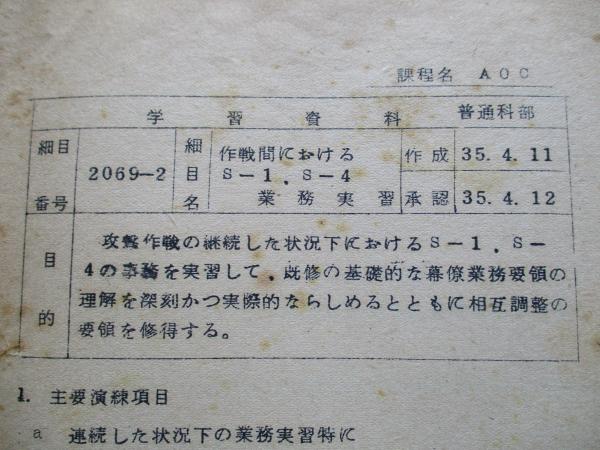 課程名 AOC
学習資料 普通科部
細目番号 2069-2 細目名 作戦間における 作成 35.4.11
S-1.S-4
業務実習 承認 35.4.12
目的 攻撃作戦の継続した状況下におけるS-1.S-
4の事務を実習して.既修の基礎的な幕僚業務要領の
理解を深刻かつ実際的ならしめるとともに相互調整の
要領を修得する。
1. 主要演練項目
a 連続した状況下の業務実習特に